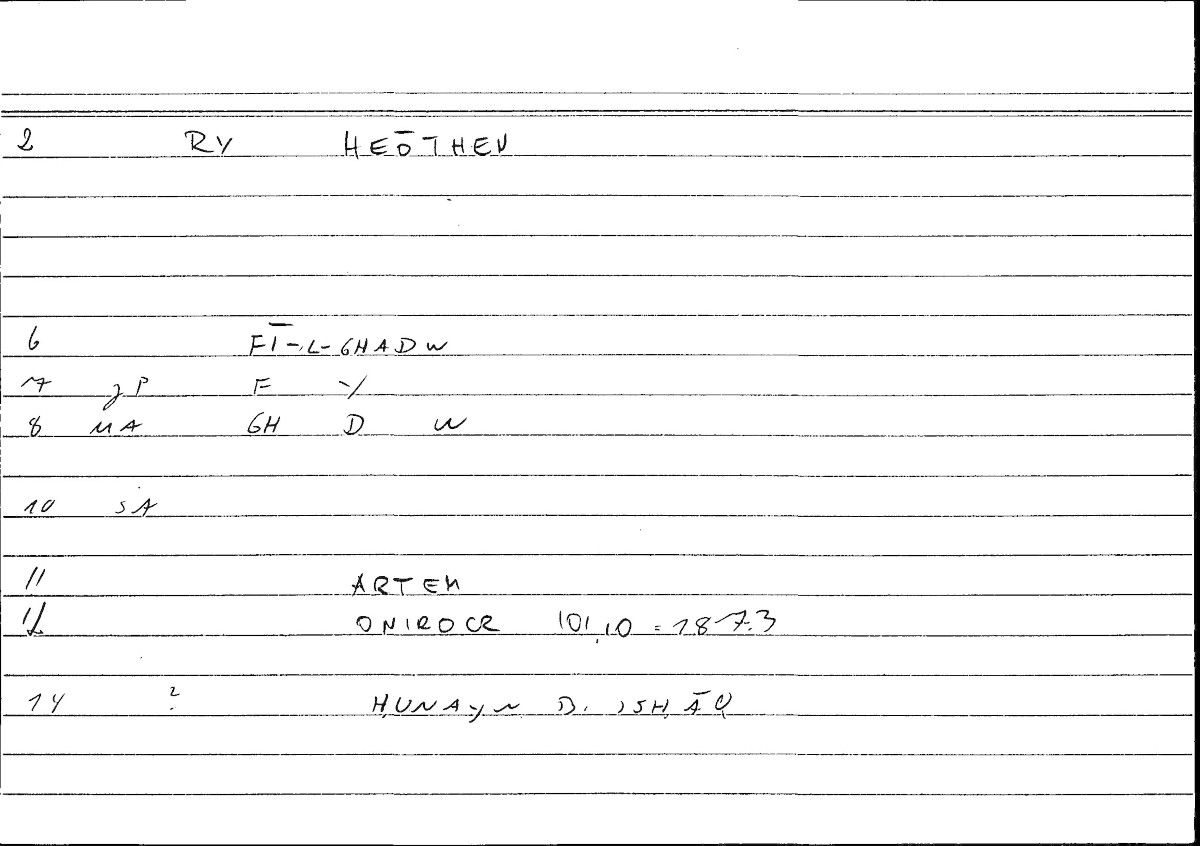 2 RY HEŌTHEN
6 FĪ-L-GHADW
7 JP F Y
8 MA GH D W
10 SA
11 ARTEM
12 ONIROCR 101,10 = 187.3
14 ? ḤUNAYN B. ISḤĀQ